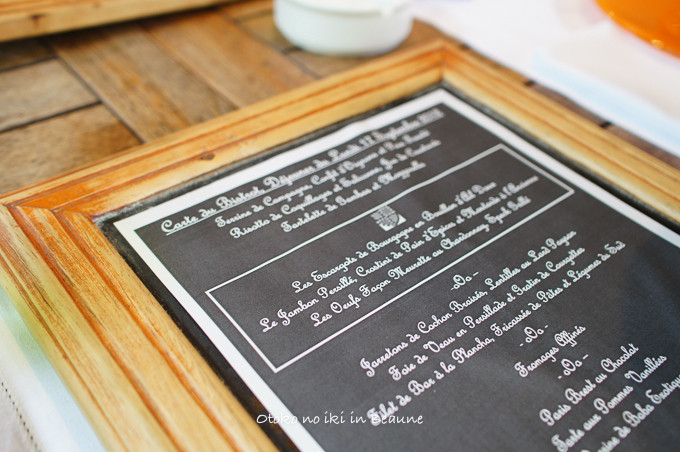 Carte du Bistrot, Déjeuner du Lundi 17 Septembre 2012
Terrine de Campagne, Confit d'Oignons et Pain Toasté
Risotto de Coquillages et Saluzes, Jus de
Tartelette de Jambon et
Les Escargots de Bourgogne en Beurre d'Ail Doux
Le Jambon Persillé, Croutons de Pain d'Epices et Moutarde à l'Ancienne
Les Oeufs Façon Meurette au Chardonnay, Speck Grillé
-oOo-
Jarretons de Cochon Braisés, Lentilles au Lard Paysan
Foie de Veau en Persillade et Gratin de Courgettes
Filet de Bar à la Plancha, Fricassée de Pâtes et Légumes du Sud
-oOo-
Fromages Affinés
-oOo-
Paris Brest au Chocolat
Tarte aux Pommes Vanillées
de Baba Exotique
Otoko no iki in Beaune